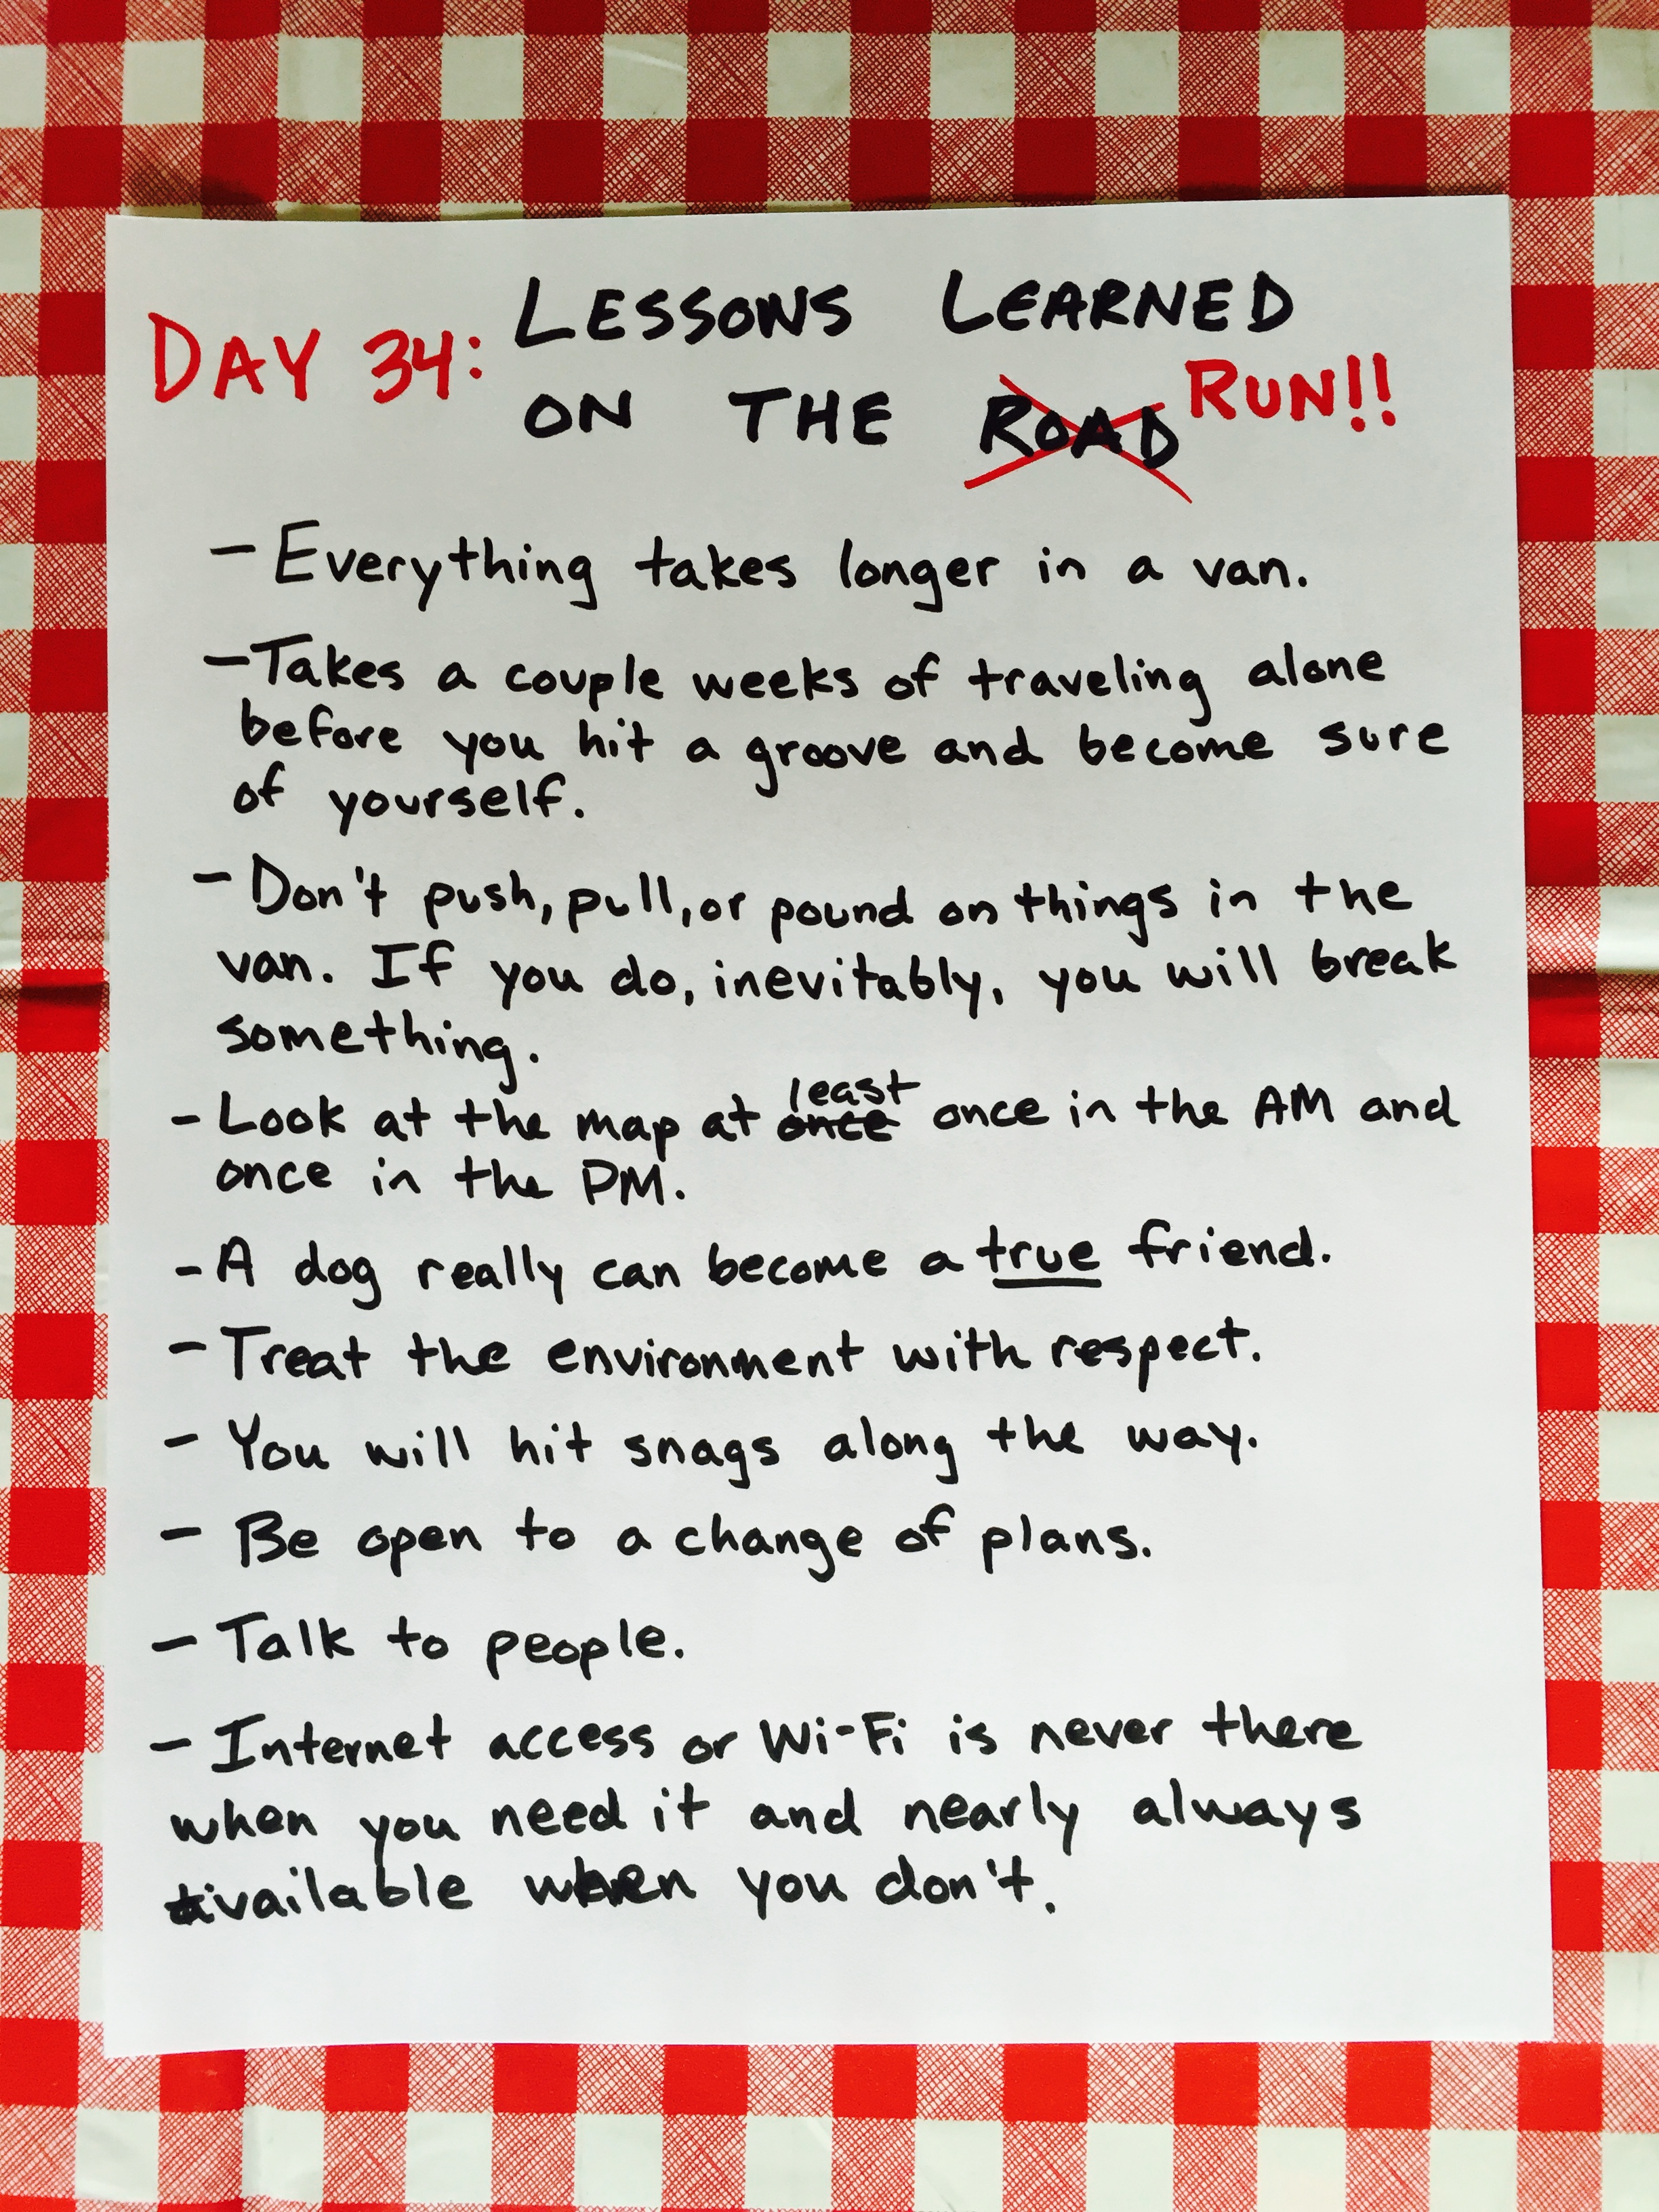 DAY 34: LESSONS LEARNED
ON THE ROAD RUN!!
- Everything takes longer in a van.
- Takes a couple weeks of traveling alone
before you hit a groove and become sure
of yourself.
- Don't push, pull, or pound on things in the
van. If you do, inevitably, you will break
something.
- Look at the map at once least once in the AM and
once in the PM.
- A dog really can become a true friend.
- Treat the environment with respect.
- You will hit snags along the way.
- Be open to a change of plans.
- Talk to people.
- Internet access or Wi-Fi is never there
when you need it and nearly always
available when you don't.